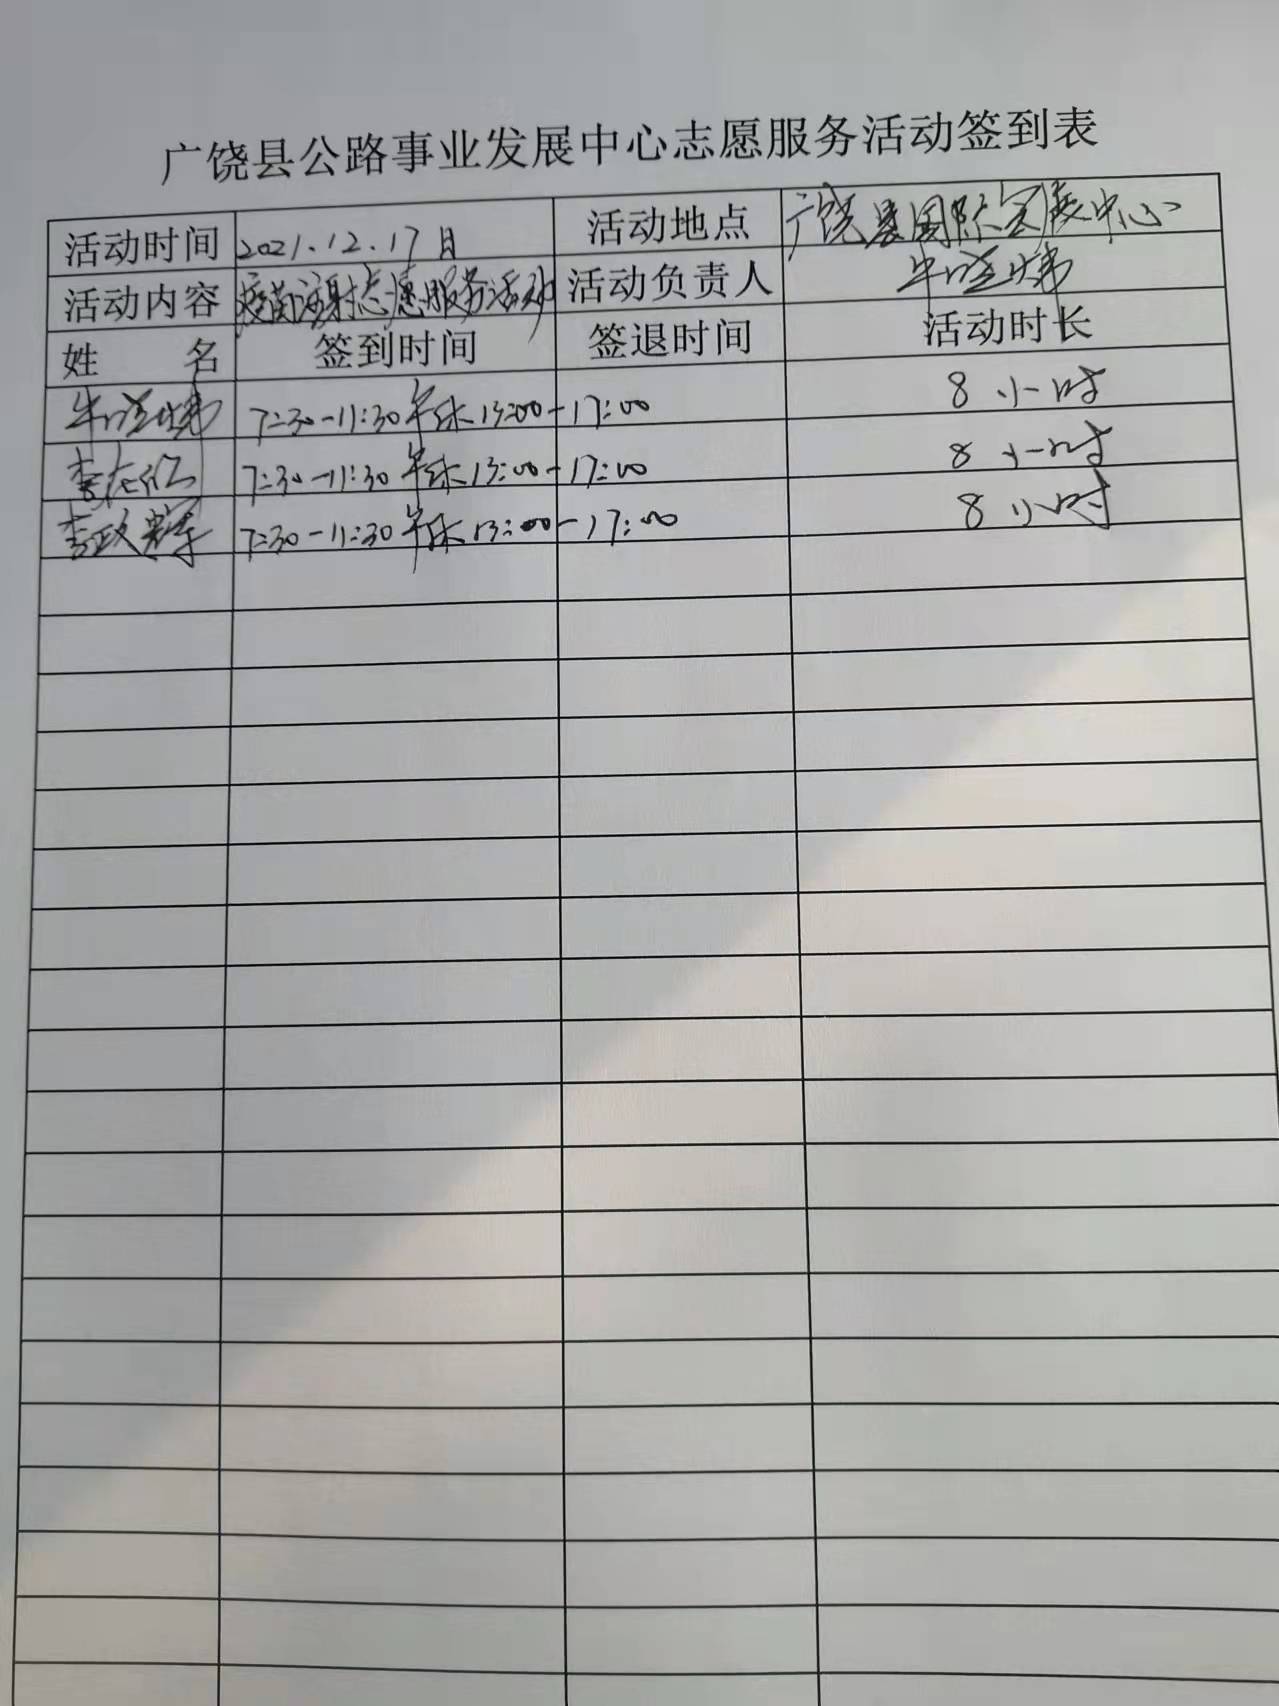 广饶县公路事业发展中心志愿服务活动签到表
活动时间 2021.12.17日 活动地点 广饶县国际会展中心
活动内容 疫苗注射志愿服务活动 活动负责人 牛晓炜
姓 名 签到时间 签退时间 活动时长
牛晓炜 7:30-11:30 午休 13:00-17:00 8小时
李 7:30-11:30 午休 13:00-17:00 8小时
李政霖 7:30-11:30 午休 13:00-17:00 8小时